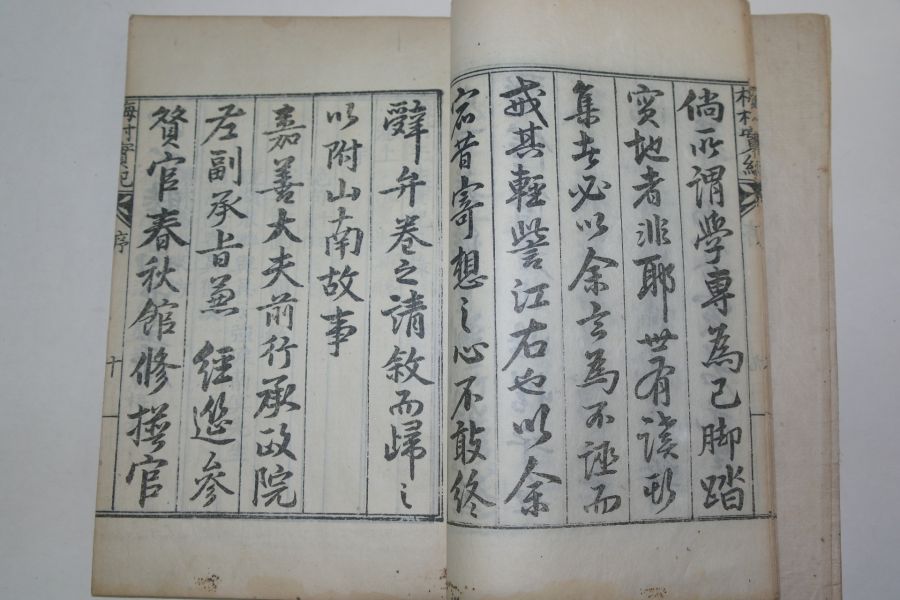 倘所謂學專為己脚踏
實地者非耶世有讀斯
集者必以余言為不誣而
或其輕訾江右也以余
宿昔寄想之心不敢終
辭弁卷之請敘而歸之
以附山南故事
嘉善大夫前行承政院
左副承旨兼 經筵參
贊官春秋館修撰官
序
十